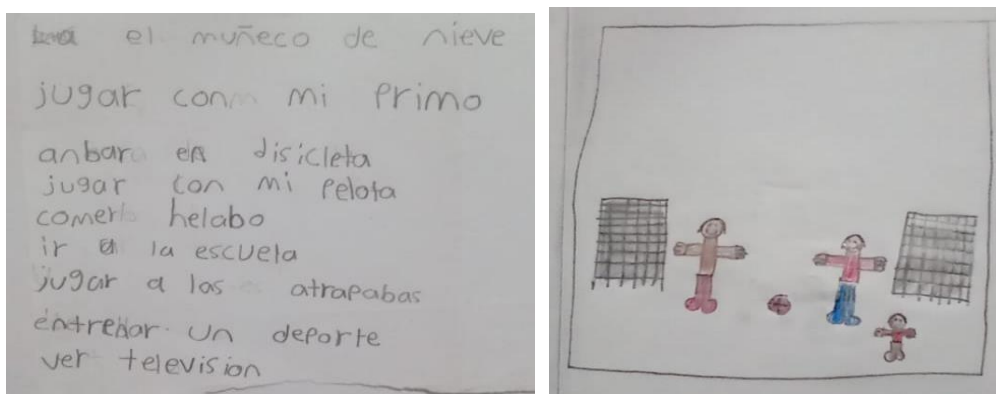 el muñeco de nieve
jugar con mi primo
anbar en disicleta
jugar con mi pelota
comer helabo
ir a la escuela
jugar a las atrapabas
entrenar un deporte
ver television